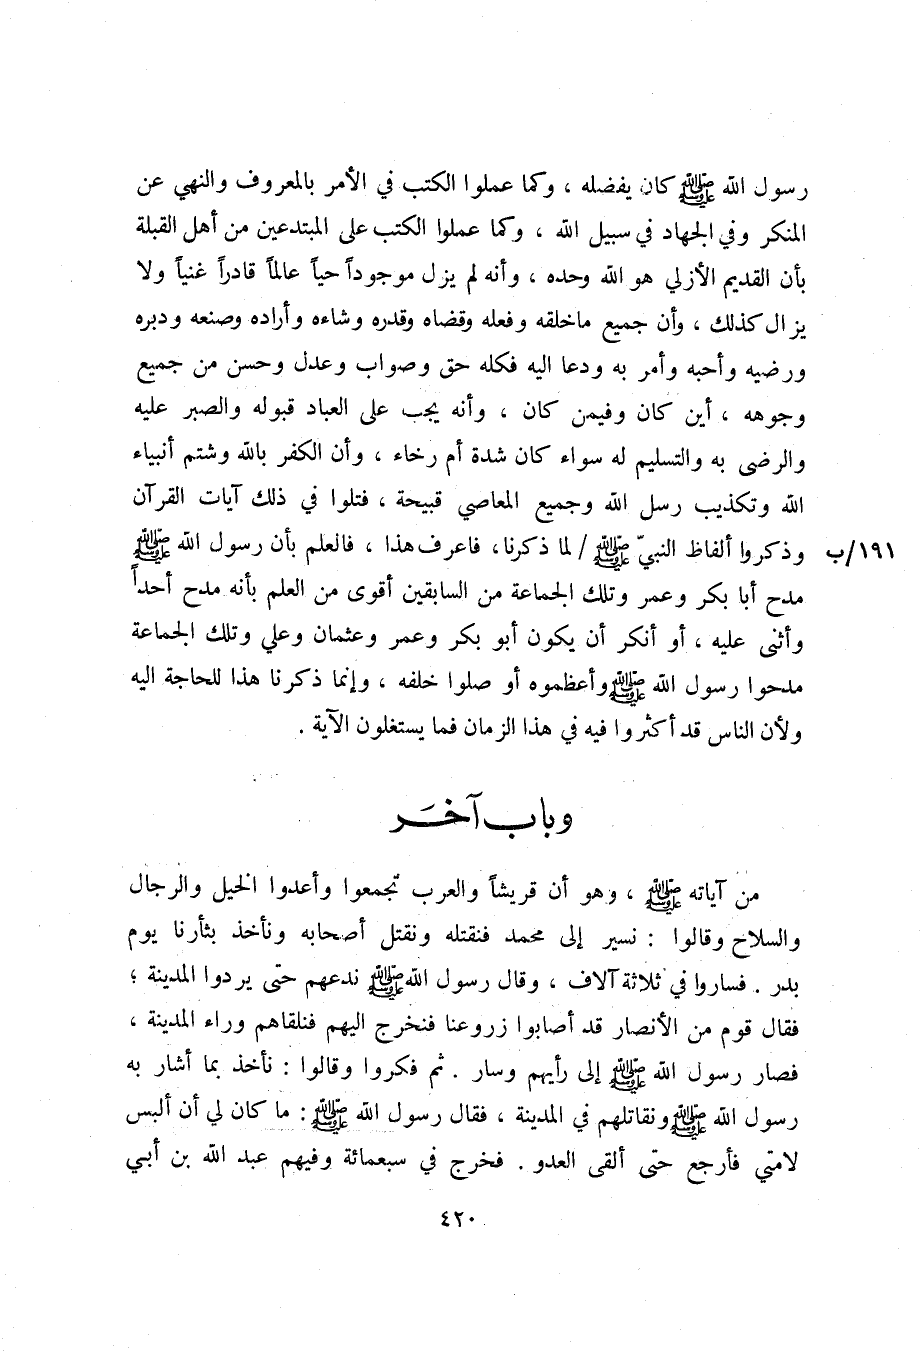 رسول الله ﷺ كان يفضله ، وكما عملوا الكتب في الأمر بالمعروف والنهي عن
المنكر وفي الجهاد في سبيل الله ، وكما عملوا الكتب على المبتدعين من أهل القبلة
بأن القديم الأزلي هو الله وحده ، وأنه لم يزل موجوداً حياً عالماً قادراً غنياً ولا
يزال كذلك ، وأن جميع ماخلقه وفعله وقضاه وقدره وشاءه وأراده وصنعه ودبره
ورضيه وأحبه وأمر به ودعا اليه فكله حق وصواب وعدل وحسن من جميع
وجوهه ، أين كان وفيمن كان ، وأنه يجب على العباد قبوله والصبر عليه
والرضى به والتسليم له سواء كان شدة أم رخاء ، وأن الكفر بالله وشتم أنبياء
الله وتكذيب رسل الله وجميع المعاصي قبيحة ، فتلوا في ذلك آيات القرآن
١٩١/ب وذكروا ألفاظ النبيّ ﷺ / لما ذكرنا، فاعرف هذا ، فالعلم بأن رسول الله ﷺ
مدح أبا بكر وعمر وتلك الجماعة من السابقين أقوى من العلم بأنه مدح أحداً
وأثنى عليه ، أو أنكر أن يكون أبو بكر وعمر وعثمان وعلي وتلك الجماعة
مدحوا رسول الله ﷺ وأعظموه أو صلوا خلفه ، وإنما ذكرنا هذا للحاجة اليه
ولأن الناس قد أكثروا فيه في هذا الزمان فما يستغلون الآية .
وباب آخَر
من آياته ﷺ ، وهو أن قريشاً والعرب تجمعوا وأعدوا الخيل والرجال
والسلاح وقالوا : نسير إلى محمد فنقتله ونقتل أصحابه ونأخذ بثأرنا يوم
بدر . فساروا في ثلاثة آلاف ، وقال رسول الله ﷺ ندعهم حتى يردوا المدينة ؛
فقال قوم من الأنصار قد أصابوا زروعنا فنخرج اليهم فنلقاهم وراء المدينة ،
فصار رسول الله ﷺ إلى رأيهم وسار . ثم فكروا وقالوا : نأخذ بما أشار به
رسول الله ﷺ ونقاتلهم في المدينة ، فقال رسول الله ﷺ : ما كان لي أن ألبس
لامتي فأرجع حتى ألقى العدو . فخرج في سبعمائة وفيهم عبد الله بن أبي
٤٢٠